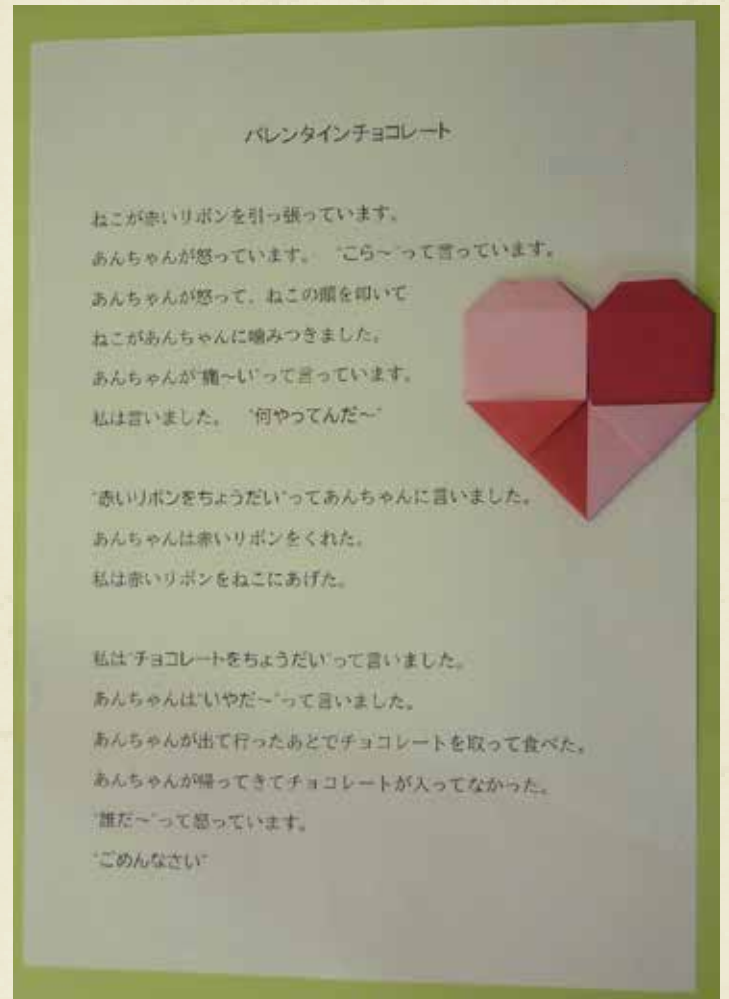 バレンタインチョコレート
ねこが赤いリボンを引っ張っています。
あんちゃんが怒っています。 “こら～”って言っています。
あんちゃんが怒って、ねこの頭を叩いて
ねこがあんちゃんに噛みつきました。
あんちゃんが“痛～い”って言っています。
私は言いました。 “何やってんだ～”
“赤いリボンをちょうだい”ってあんちゃんに言いました。
あんちゃんは赤いリボンをくれた。
私は赤いリボンをねこにあげた。
私は“チョコレートをちょうだい”って言いました。
あんちゃんは“いやだ～”って言いました。
あんちゃんが出て行ったあとでチョコレートを取って食べた。
あんちゃんが帰ってきてチョコレートが入ってなかった。
“誰だ～”って怒っています。
“ごめんなさい”